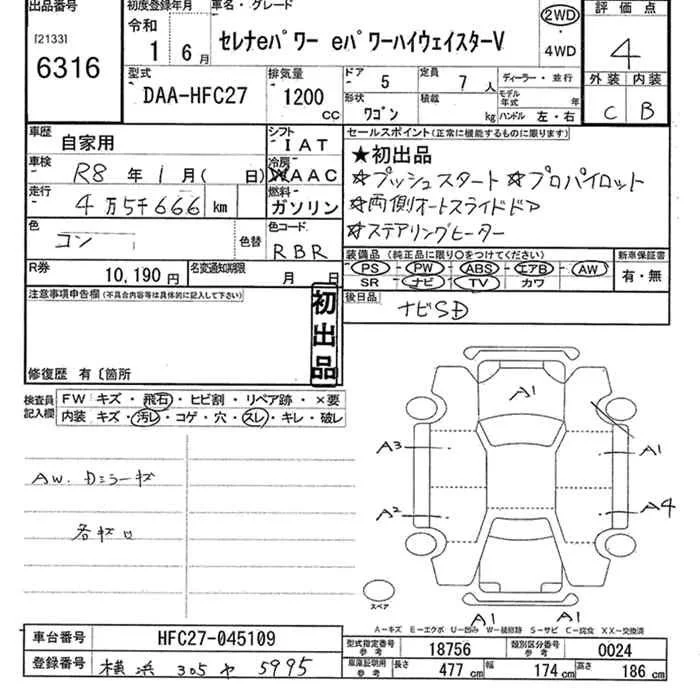 出品番号
[2133]
6316
初度登録年月
令和
1 6月
車名・グレード
セレナeパワー eパワーハイウェイスターV
2WD
・
4WD
評価点
4
外装 内装
C B
型式
DAA-HFC27
排気量
1200
CC
ドア 5
定員 7 人
ディーラー・並行
形状 ワゴン
積載 kg
モデル年式 年
ハンドル 左・右
車歴 自家用
シフト
IAT
車検 R8 年 1 月 ( 日)
冷房
AAC
走行 4万5千666 km
燃料
ガソリン
色 コン
色替
色コード
RBR
R券 10,190 円
名変通知期限 月 日
セールスポイント(正常に機能するものに限ります)
★初出品
☆プッシュスタート ☆プロパイロット
☆両側オートスライドドア
☆ステアリングヒーター
装備品 (純正品に限り○をつけてください)
PS - PW - ABS - エアB - AW -
SR ナビ TV カワ
新車保証書
有・無
後日品
ナビSD
注意事項申告欄 (不具合内容等は具体的に記入して下さい)
初出品
修復歴 有〔箇所
検査員記入欄
FW キズ・飛石・ヒビ割・リペア跡・×要
内装 キズ・汚レ・コゲ・穴・スレ・キレ・破レ
AW. Dミラーキズ
各キズ
A1
A3
A1
A2
A4
A1
A1
スペア
A-キズ E-エクボ U-凹み W-補修跡 S-サビ C-腐食 XX-交換済
車台番号 HFC27-045109
登録番号 横浜 305 ヤ 5995
型式指定番号
参考
18756
類別区分番号
参考
0024
車庫証明用
参考
長さ 477 cm 幅 174 cm 高さ 186 cm